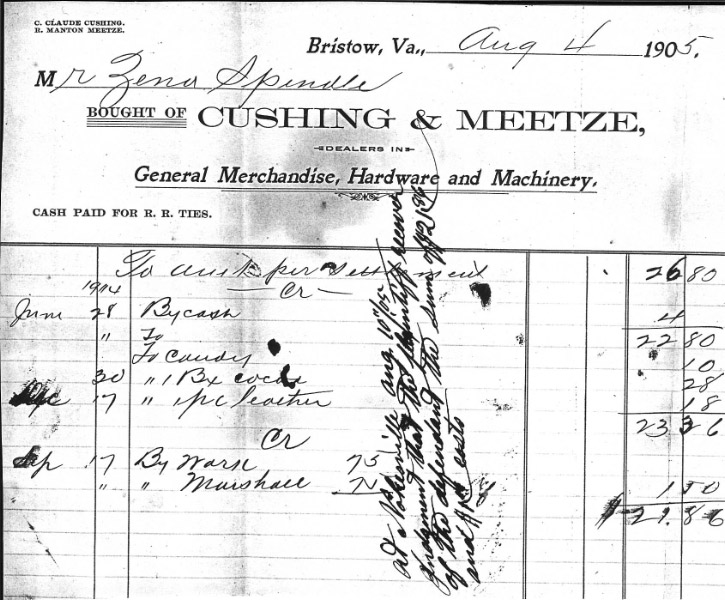 C. CLAUDE CUSHING.
R. MANTON MEETZE.
Bristow, Va., Aug 4 1905.
Mr Zeno Spindle
BOUGHT OF CUSHING & MEETZE,
DEALERS IN
General Merchandise, Hardware and Machinery.
CASH PAID FOR R. R. TIES.
To amt per settlement 26 80
Cr
1904
June 28 By cash 4
" To 22 80
To Candy 10
30 " 1 Bx cocoa 28
17 " 1 pc leather 18
23 36
Cr
Sep 17 By Work 75
" " Marshall 75 1 50
$ 21.86
at Nokesville aug 10"/05
Judgment that the plaintiff recover
of the defendant the sum of $21 86
and costs